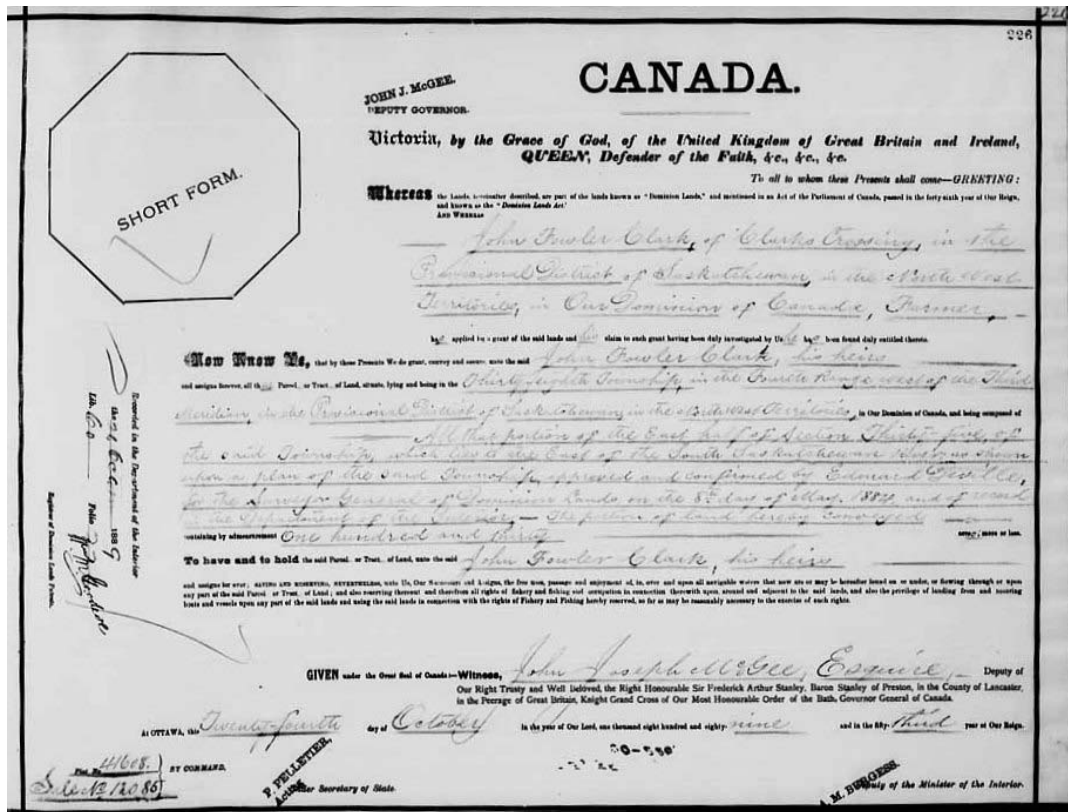 226
226
CANADA.
JOHN J. McGEE,
DEPUTY GOVERNOR.
Victoria, by the Grace of God, of the United Kingdom of Great Britain and Ireland,
QUEEN, Defender of the Faith, &c., &c., &c.
To all to whom these Presents shall come—GREETING:
SHORT FORM.
Whereas the Lands, hereinafter described, are part of the lands known as "Dominion Lands," and mentioned in an Act of the Parliament of Canada, passed in the forty-sixth year of Our Reign,
and known as the "Dominion Lands Act."
AND WHEREAS
John Fowler Clark, of Clarks Crossing, in the
Provisional District of Saskatchewan, in the North West
Territories, in Our Dominion of Canada, Farmer,
has applied for a grant of the said lands and his claim to such grant having been duly investigated by Us he has been found duly entitled thereto.
Now Know Ye, that by these Presents We do grant, convey and assure unto the said John Fowler Clark, his heirs
and assigns forever, all that Parcel, or Tract, of Land, situate, lying and being in the Thirty eighth Township, in the Fourth Range west of the Third
Meridian, in the Provisional District of Saskatchewan, in the North West Territories, in Our Dominion of Canada, and being composed of
All that portion of the East half of Section Thirty-five, of
the said Township, which lies to the East of the South Saskatchewan River, as shown
upon a plan of the said Township, approved and confirmed by Edouard Deville,
for the Surveyor General of Dominion Lands on the 8th day of May, 1884, and of record
in the Department of the Interior,— The portion of land hereby conveyed
containing by admeasurement One hundred and thirty acres, more or less.
To have and to hold the said Parcel, or Tract, of Land, unto the said John Fowler Clark, his heirs
and assigns for ever; SAVING AND RESERVING, NEVERTHELESS, unto Us, Our Successors and Assigns, the free uses, passage and enjoyment of, in, over and upon all navigable waters that now are or may be hereafter found on or under, or flowing through or upon
any part of the said Parcel or Tract, of Land; and also reserving thereout and therefrom all rights of fishery and fishing and occupation in connection therewith upon, around and adjacent to the said lands, and also the privilege of landing from and mooring
boats and vessels upon any part of the said lands and using the said lands in connection with the rights of Fishery and Fishing hereby reserved, so far as may be reasonably necessary to the exercise of such rights.
Recorded in the Department of the Interior
this 1889
Lib. 60 Folio
Registrar of Dominion Lands Patents.
GIVEN under the Great Seal of Canada:—Witness, John Joseph McGee, Esquire,— Deputy of
Our Right Trusty and Well Beloved, the Right Honourable Sir Frederick Arthur Stanley, Baron Stanley of Preston, in the County of Lancaster,
in the Peerage of Great Britain, Knight Grand Cross of Our Most Honourable Order of the Bath, Governor General of Canada.
At OTTAWA, this Twenty-fourth day of October in the year of Our Lord, one thousand eight hundred and eighty-nine and in the fifty-third year of Our Reign.
41608.
Sale No 12085
BY COMMAND,
P. PELLETIER,
Acting Under Secretary of State.
A. M. BURGESS,
Deputy of the Minister of the Interior.